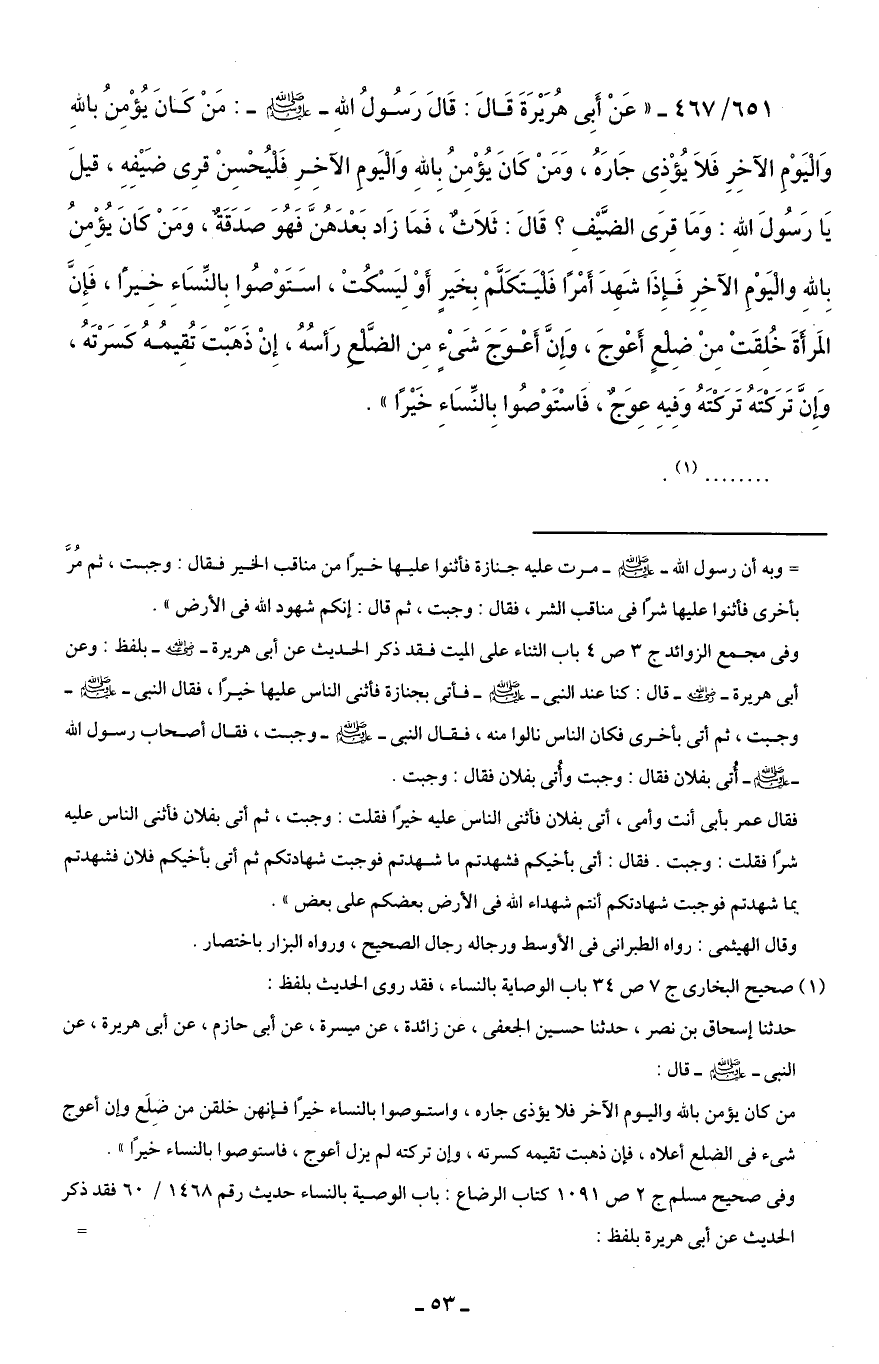 ٤٦٧/٦٥١ ـ « عَنْ أَبِى هُرَيْرَةَ قَالَ : قَالَ رَسُولُ اللهِ ـ ﷺ ـ : مَنْ كَانَ يُؤْمِنُ بِاللهِ
وَالْيَوْمِ الآخِرِ فَلاَ يُؤْذِى جَارَهُ ، وَمَنْ كَانَ يُؤْمِنُ بِاللهِ وَالْيَومِ الآخِرِ فَلْيُحْسِنْ قِرى ضَيْفِهِ ، قيلَ
يَا رَسُولَ اللهِ : وَمَا قِرَى الضَّيْفِ ؟ قَالَ : ثَلاَثٌ ، فَمَا زَاد بَعْدَهُنَّ فَهُوَ صَدَقَةٌ ، وَمَنْ كَانَ يُؤْمِنُ
بِاللهِ والْيَوْمِ الآخرِ فَإِذَا شَهِدَ أَمْرًا فَلْيَتَكَلَّمْ بِخَيرٍ أَوْ لِيَسْكُتْ ، اسْتَوْصُوا بِالنِّسَاءِ خيرًا ، فَإِنَّ
المَرأَةَ خُلِقَتْ مِنْ ضِلعٍ أَعْوجَ ، وَإِنَّ أَعْوَجَ شَىْءٍ مِن الضلَّعِ رَأسُهُ ، إِنْ ذَهَبْتَ تُقِيمُهُ كَسَرْتَهُ ،
وَإِنَّ تَرَكْتَهُ تَرَكْتَهُ وَفِيهِ عِوَجٌ ، فَاسْتَوْصُوا بِالنِّسَاءِ خَيْرًا » .
........ (١) .
= وبه أن رسول الله ـ ﷺ ـ مرت عليه جنازة فأثنوا عليها خيرًا من مناقب الخير فقال : وجبت ، ثم مُرَّ
بأخرى فأثنوا عليها شرًا فى مناقب الشر ، فقال : وجبت ، ثم قال : إنكم شهود الله فى الأرض » .
وفى مجمع الزوائد ج ٣ ص ٤ باب الثناء على الميت فقد ذكر الحديث عن أبى هريرة ـ رضي الله عنه ـ بلفظ : وعن
أبى هريرة ـ رضي الله عنه ـ قال : كنا عند النبى ـ ﷺ ـ فأتى بجنازة فأثنى الناس عليها خيرًا ، فقال النبى ـ ﷺ ـ
وجبت ، ثم أتى بأخرى فكان الناس نالوا منه ، فقال النبى ـ ﷺ ـ وجبت ، فقال أصحاب رسول الله
ـ ﷺ ـ أُتى بفلان فقال : وجبت وأُتى بفلان فقال : وجبت .
فقال عمر بأبى أنت وأمى ، أتى بفلان فأثنى الناس عليه خيرًا فقلت : وجبت ، ثم أتى بفلان فأثنى الناس عليه
شرًا فقلت : وجبت . فقال : أتى بأخيكم فشهدتم ما شهدتم فوجبت شهادتكم ثم أتى بأخيكم فلان فشهدتم
بما شهدتم فوجبت شهادتكم أنتم شهداء الله فى الأرض بعضكم على بعض » .
وقال الهيثمى : رواه الطبرانى فى الأوسط ورجاله رجال الصحيح ، ورواه البزار باختصار .
(١) صحيح البخارى ج ٧ ص ٣٤ باب الوصاية بالنساء ، فقد روى الحديث بلفظ :
حدثنا إسحاق بن نصر ، حدثنا حسين الجعفى ، عن زائدة ، عن ميسرة ، عن أبى حازم ، عن أبى هريرة ، عن
النبى ـ ﷺ ـ قال :
من كان يؤمن بالله واليوم الآخر فلا يؤذى جاره ، واستوصوا بالنساء خيرًا فإنهن خلقن من ضلَع وإن أعوج
شىء فى الضلع أعلاه ، فإن ذهبت تقيمه كسرته ، وإن تركته لم يزل أعوج ، فاستوصوا بالنساء خيرًا » .
وفى صحيح مسلم ج ٢ ص ١٠٩١ كتاب الرضاع : باب الوصية بالنساء حديث رقم ١٤٦٨ / ٦٠ فقد ذكر
الحديث عن أبى هريرة بلفظ : =
ـ ٥٣ ـ